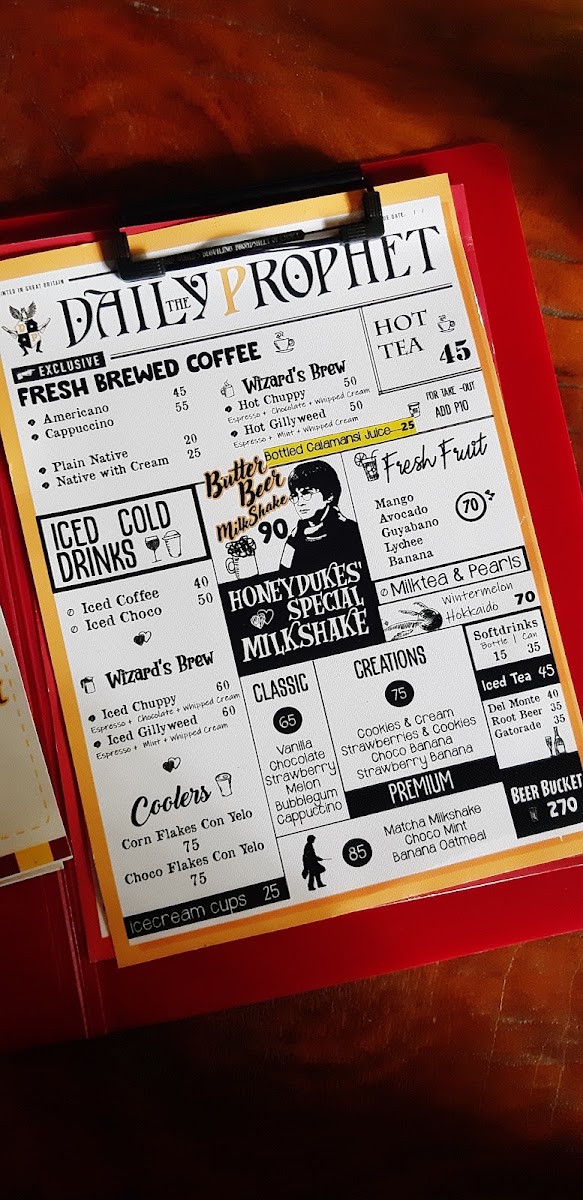 PRINTED IN GREAT BRITAIN
DUE DATE: / /
THE DAILY PROPHET
EXCLUSIVE
FRESH BREWED COFFEE
Americano 45
Cappuccino 55
Plain Native 20
Native with Cream 25
Wizard's Brew
Hot Chuppy 50
Espresso + Chocolate + Whipped Cream
Hot Gillyweed 50
Espresso + Mint + Whipped Cream
HOT
TEA 45
FOR TAKE-OUT
ADD P10
Bottled Calamansi Juice...25
ICED COLD
DRINKS
Iced Coffee 40
Iced Choco 50
Wizard's Brew
Iced Chuppy 60
Espresso + Chocolate + Whipped Cream
Iced Gillyweed 60
Espresso + Mint + Whipped Cream
Coolers
Corn Flakes Con Yelo
75
Choco Flakes Con Yelo
75
icecream cups 25
Butter
Beer
MilkShake
90
HONEYDUKES'
SPECIAL
MILKSHAKE
Fresh Fruit
Mango
Avocado
Guyabano
Lychee
Banana
70
Milktea & Pearls
Wintermelon
Hokkaido 70
CLASSIC
65
Vanilla
Chocolate
Strawberry
Melon
Bubblegum
Cappuccino
CREATIONS
75
Cookies & Cream
Strawberries & Cookies
Choco Banana
Strawberry Banana
PREMIUM
85
Matcha Milkshake
Choco Mint
Banana Oatmeal
Softdrinks
Bottle | Can
15 35
Iced Tea 45
Del Monte 40
Root Beer 35
Gatorade 35
BEER BUCKET
270